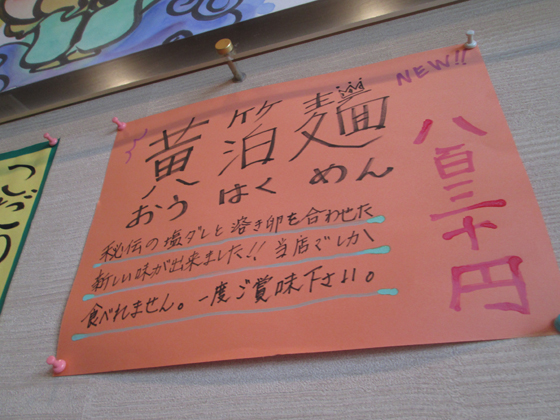 NEW!!
黄箔麺
おうはくめん
秘伝の塩ダレと溶き卵を合わせた
新しい味が出来ました!! 当店でしか
食べれません。一度ご賞味下さい。
八百三十円